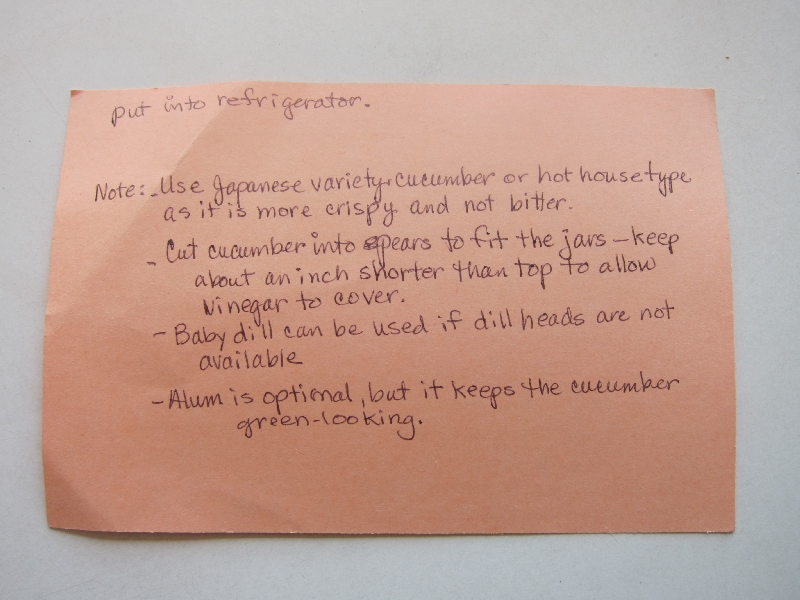 put into refrigerator.
Note: - Use Japanese variety cucumber or hot house type
as it is more crispy and not bitter.
- Cut cucumber into spears to fit the jars - keep
about an inch shorter than top to allow
vinegar to cover.
- Baby dill can be used if dill heads are not
available
- Alum is optional, but it keeps the cucumber
green-looking.